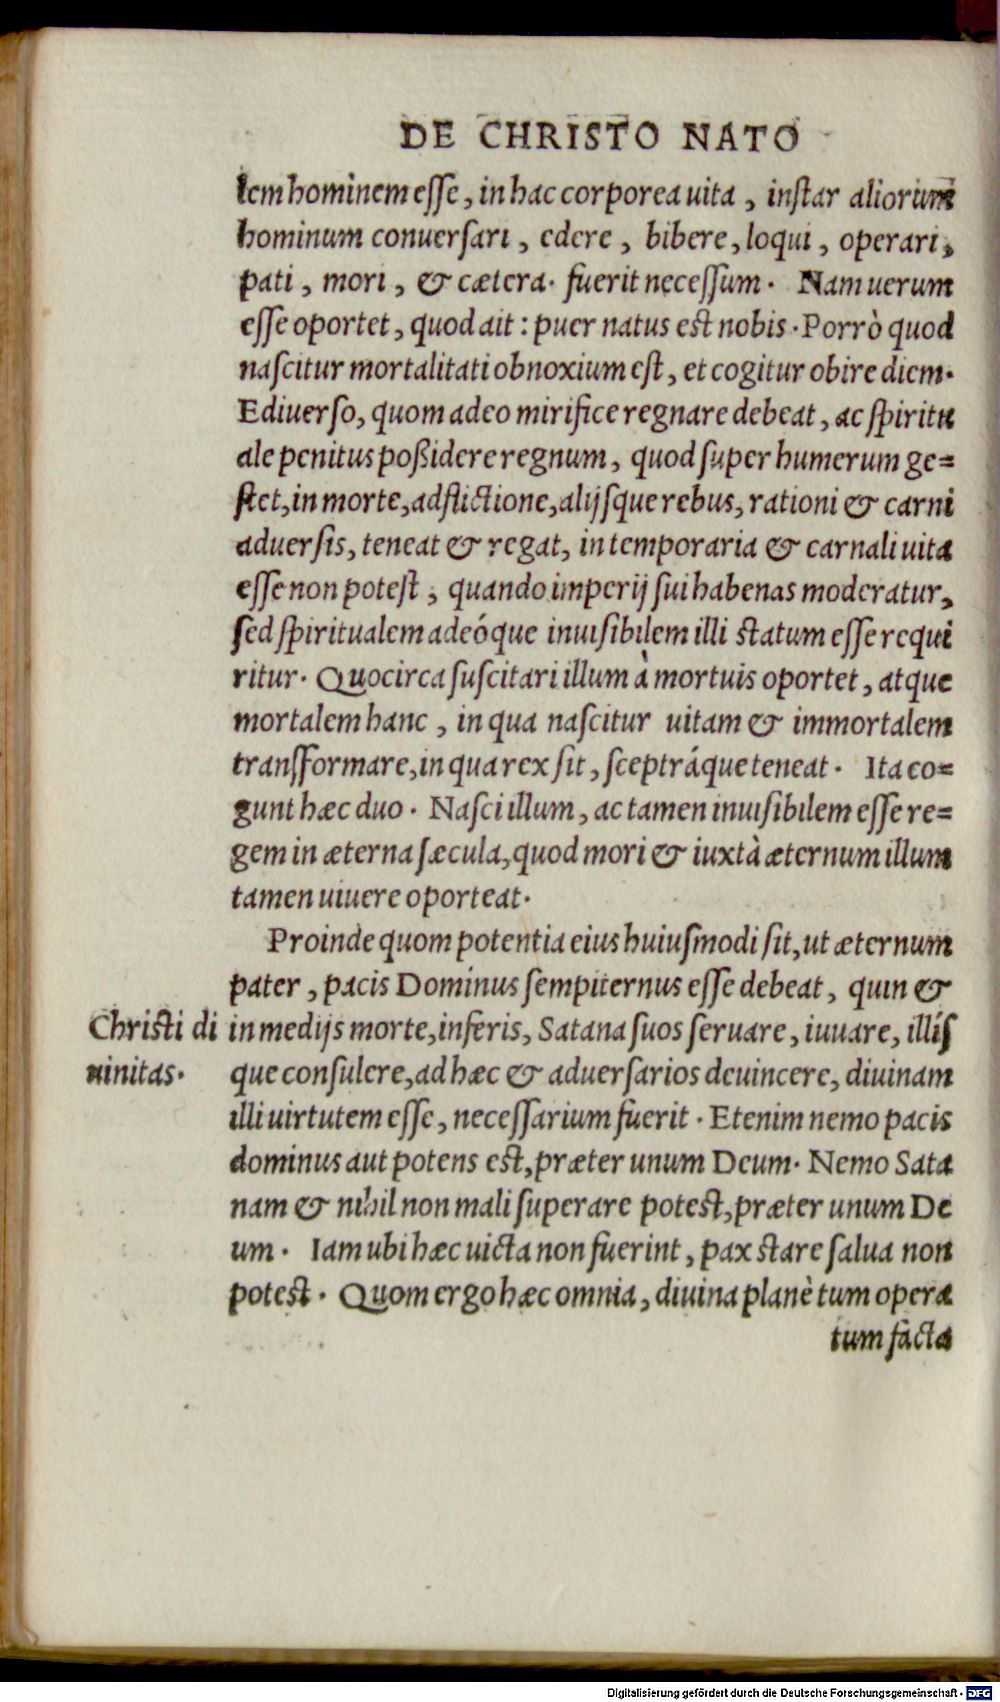 DE CHRISTO NATO
lem hominem esse, in hac corporea uita, instar aliorum
hominum conuersari, edere, bibere, loqui, operari,
pati, mori, & cætera. fuerit necessum. Nam uerum
esse oportet, quod ait: puer natus est nobis. Porrò quod
nascitur mortalitati obnoxium est, et cogitur obire diem.
E diuerso, quom adeo mirifice regnare debeat, ac spiritu
ale penitus poßidere regnum, quod super humerum ge=
stet, in morte, adflictione, alijsque rebus, rationi & carni
aduersis, teneat & regat, in temporaria & carnali uita
esse non potest, quando imperij sui habenas moderatur,
sed spiritualem adeóque inuisibilem illi statum esse requi
ritur. Quocirca suscitari illum à mortuis oportet, atque
mortalem hanc, in qua nascitur uitam & immortalem
transformare, in qua rex sit, sceptráque teneat. Ita co=
gunt hæc duo. Nasci illum, ac tamen inuisibilem esse re=
gem in æterna sæcula, quod mori & iuxtà æternum illum
tamen uiuere oporteat.
Proinde quom potentia eius huiusmodi sit, ut æternum
pater, pacis Dominus sempiternus esse debeat, quin &
Christi di
uinitas.
in medijs morte, inferis, Satana suos seruare, iuuare, illís
que consulere, ad hæc & aduersarios deuincere, diuinam
illi uirtutem esse, necessarium fuerit. Etenim nemo pacis
dominus aut potens est, præter unum Deum. Nemo Sata
nam & nihil non mali superare potest, præter unum De
um. Iam ubi hæc uicta non fuerint, pax stare salua non
potest. Quom ergo hæc omnia, diuina planè tum opera
tum facta
Digitalisierung gefördert durch die Deutsche Forschungsgemeinschaft - DFG